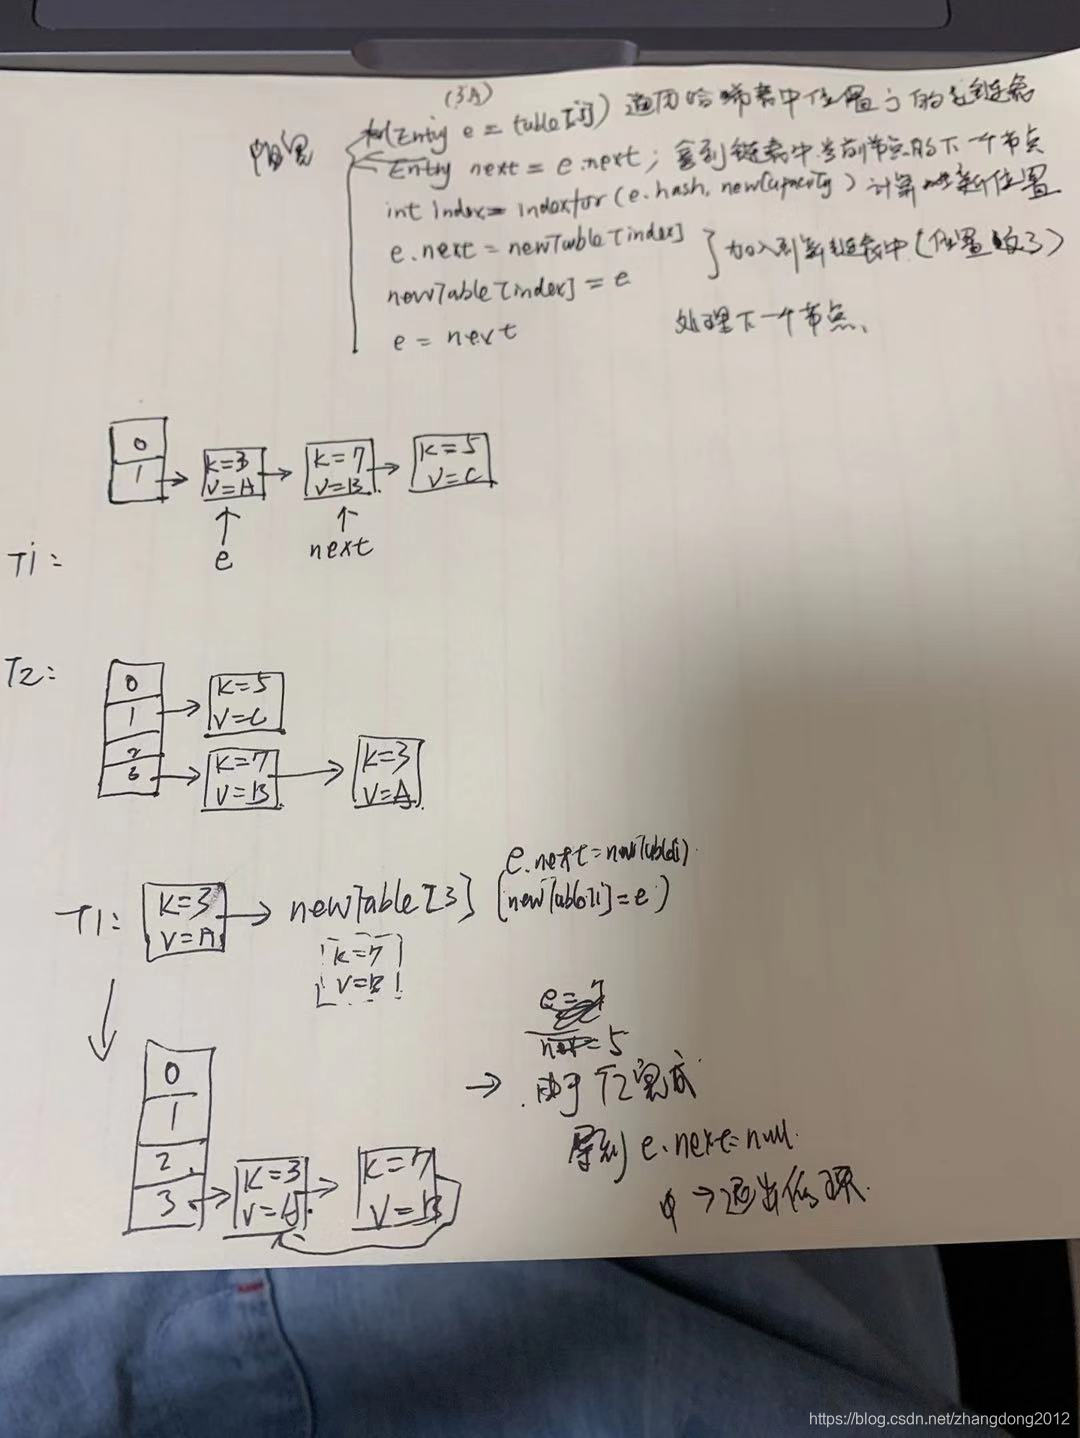 (3A)
(Entry e = table[j]) 遍历哈希表中位置j的链表
阻塞
Entry next = e.next; 拿到链表中当前节点的下一个节点
int index = indexfor(e.hash, newCapacity) 计算新位置
e.next = newTable[index] } 加入到新链表中(位置变了)
newTable[index] = e
e = next 处理下一个节点、
0
1
K=3
V=A
K=7
V=B
K=5
V=C
e
next
T1:
T2:
0
1
2
3
K=5
V=C
K=7
V=B
K=3
V=A
T1:
K=3
V=A
newTable[3]
e.next=newTable[i]
(newTable[i]=e)
K=7
V=B
e=7
next=5
由于T2完成
得到 e.next=null.
→退出循环.
0
1
2
3
K=3
V=A
K=7
V=B
https://blog.csdn.net/zhangdong2012